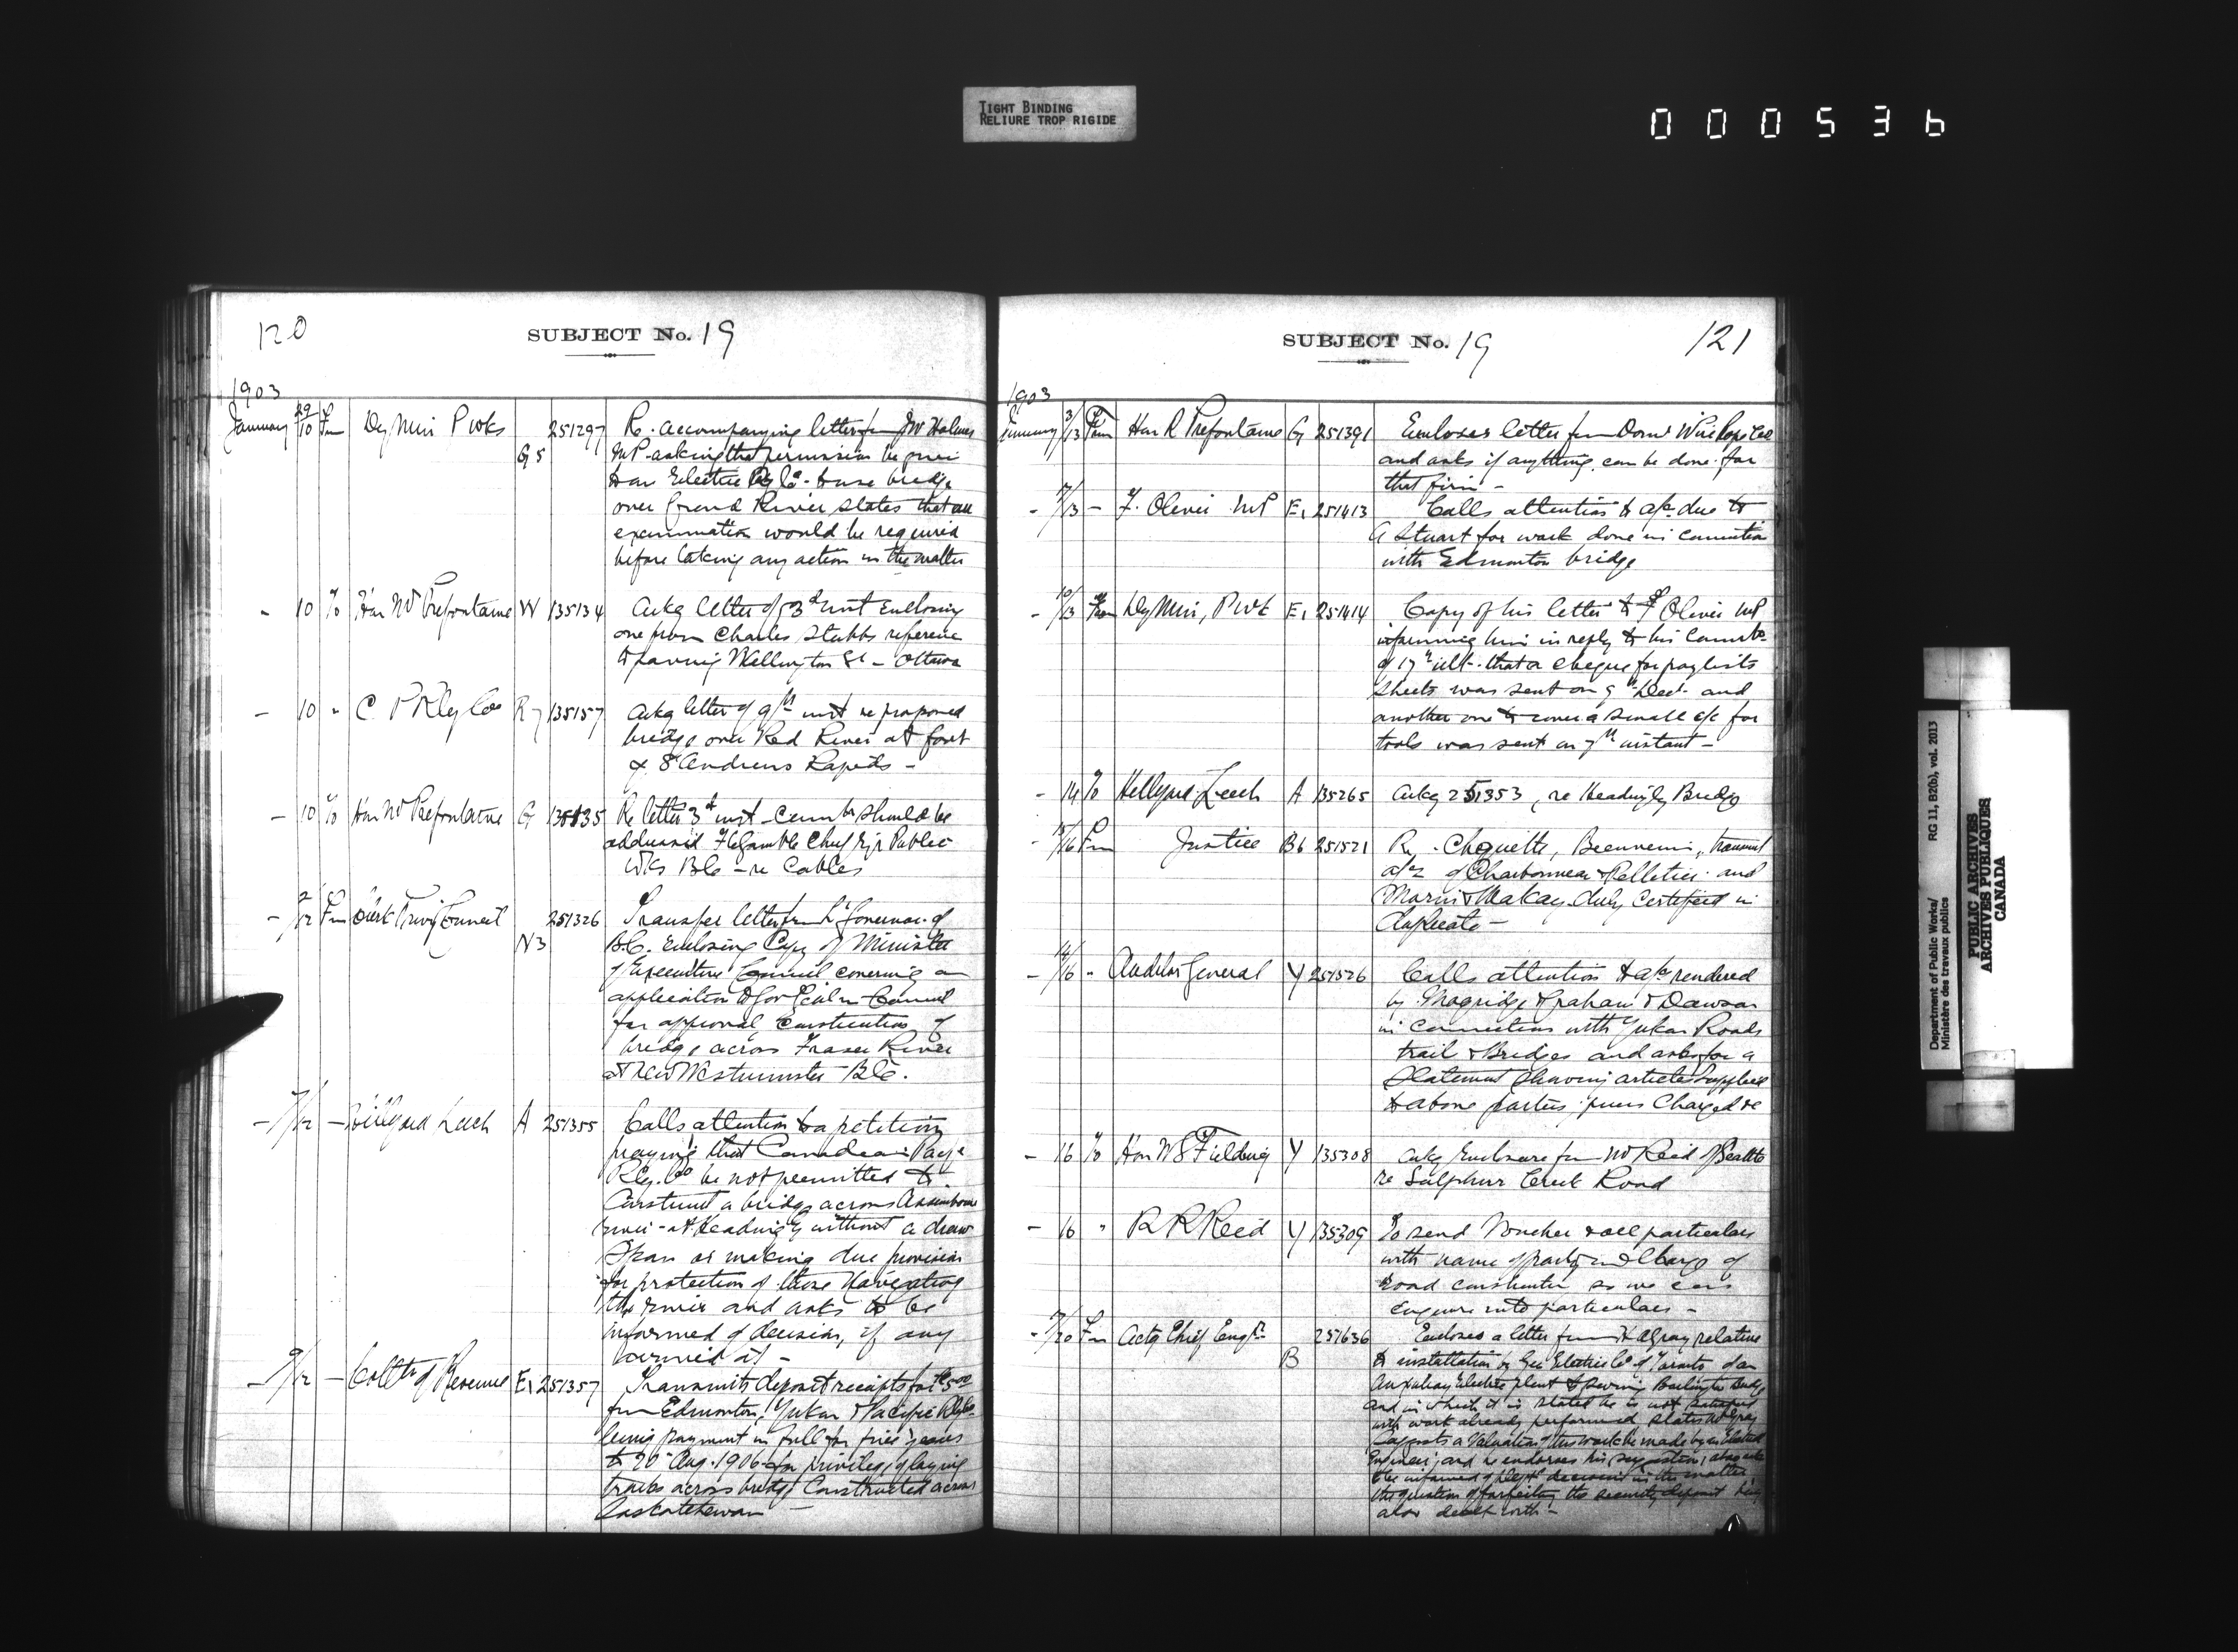 TIGHT BINDING
RELIURE TROP RIGIDE
000536
120
SUBJECT No. 19
1903
January 29/10 Fm Dy Min P Wks G5 251297 Re accompanying letter fm J W Holmes
MP asking that permission be given
Electric Ry Co use bridge
over Grand River states that an
examination would be required
before taking any action in the matter
- 10 To Hon Mr Prefontaine W 135134 Ackg letter of 3d inst enclosing
one from Charles Stubbs reference
to paving Wellington St - Ottawa
- 10 " C P Rly Co R7 135157 Ackg letter of 9th inst re proposed
bridge over Red River at foot
of St Andrews Rapids -
- 10 To Hon Mr Prefontaine G 135135 Re letter 3d inst - should be
addressed F C Gamble Chief Public
Wks B C - re Cables
- 2/12 Fm Clerk Privy Council N3 251326 Transfer letter fm Lt Governor of
B.C. enclosing Copy of Minute
of Executive Council covering an
application to Gov Genl in Council
for approval Construction of
bridge across Fraser River
at New Westminster B.C.
- 7/12 - Hillyard Leech A 251355 Calls attention to a petition
praying that Canadian Pacif
Rly. Co be not permitted to
Construct a bridge across Assiniboine
river at Headingly without a draw
Span or making due provision
for protection of those Navigating
the river and asks to be
informed of decision, if any
arrived at -
- 9/12 - Collctr of Revenue E1 251357 Transmits deposit receipts for $500
fm Edmonton, Yukon & Pacific Rly Co
being payment in full for five years
to 20 Aug. 1906 for privilege of laying
tracks across bridge Constructed across
Saskatchewan -
SUBJECT No. 19
121
1903
January 3/13 From Hon R Prefontaine G 251391 Encloses letter fm Domn Wire Rope Co
and asks if anything can be done for
that firm -
- 7/13 - F. Oliver MP E1 251413 Calls attention to a/c due to
A Stuart for work done in connection
with Edmonton bridge
- 10/13 From Dy Min, P Wk E1 251414 Copy of his letter to F Oliver MP
informing him in reply to his
of 17th ult. that a cheque for paylists
sheets was sent on 9th Dec. and
another one to cover a small a/c for
tools was sent on 7th instant -
- 14 To Hellyard Leech A 135265 Ackg 251353, re Headingly Bridge
- 15/16 Fm Justice B6 251521 Re Choquette, transmit
a/cs of Charbonneau & Pelletier and
Morin & Makay duly Certified in
duplicate -
- 14/16 " Auditor General Y 251526 Calls attention to a/cs rendered
by Mogridge Graham & Dawson
in connection with Yukon Roads
trail & Bridges and asks for a
Statement showing articles supplied
to above parties prices Charged &c
- 16 To Hon W S Fielding Y 135308 Ackg Enclosure fm Mr Reid of Seattle
re Sulphur Creek Road
- 16 " R R Reed Y 135309 To send Voucher & all particulars
with name of party in Charge of
road construction so we can
enquire into particulars -
- 7/20 Fm Actg Chief Engr B 251636 Encloses a letter fm H A Gray relative
to installation by Gen Electric Co of Toronto of an
Auxiliary Electric plant Burlington Bridge
and in which it is stated he is not satisfied
with work already performed states Mr Gray
suggests a Valuation of this work be made by an Electrical
Engineer, and he endorses his suggestion, also asks
to be informed of Dept decision in the matter,
the question of forfeiting the security deposit being
also dealt with -
Department of Public Works/
Ministère des travaux publics
RG 11, B2(b), vol. 2013
PUBLIC ARCHIVES
ARCHIVES PUBLIQUES
CANADA